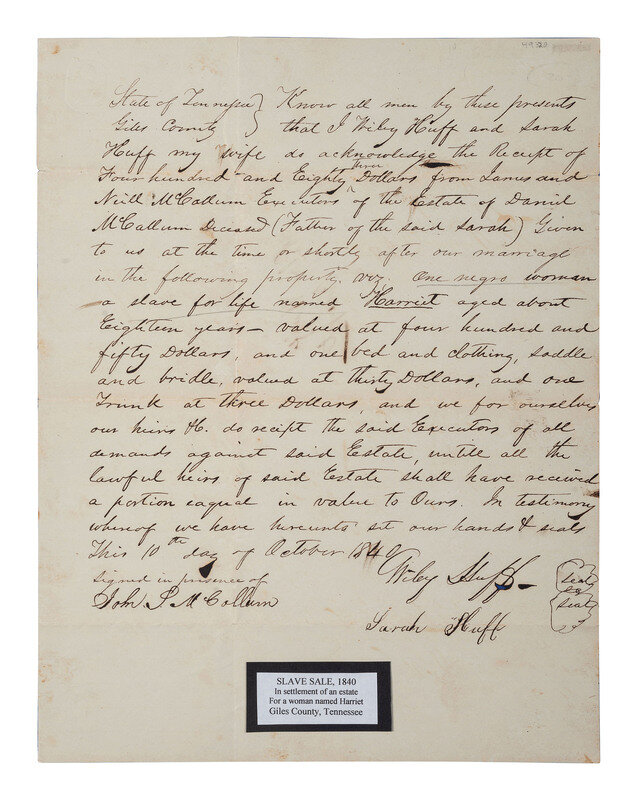 49320
State of Tennessee } Know all men by these presents
Giles County } that I Wiley Huff and Sarah
Huff my wife do acknowledge the Receipt of
Four hundred and Eighty three Dollars from James and
Neill McCallum Executors of the Estate of Daniel
McCallum Deceased (Father of the said Sarah) Given
to us at the time or shortly after our marriage
in the following property. viz. One negro woman
a slave for life named Harriet aged about
Eighteen years – valued at four hundred and
fifty Dollars, and one bed and clothing, saddle
and bridle, valued at thirty Dollars, and one
Trunk at three Dollars, and we for ourselves
our heirs &c. do reciept the said Executors of all
demands against said Estate, untill all the
lawful heirs of said Estate shall have received
a portion eaqual in value to Ours. In testimony
whereof we have hereunto set our hands & seals
This 10th day of October 1840
Signed in presence of
Wiley Huff seal
John S McCallum
Sarah Huff seal
SLAVE SALE, 1840
In settlement of an estate
For a woman named Harriet
Giles County, Tennessee